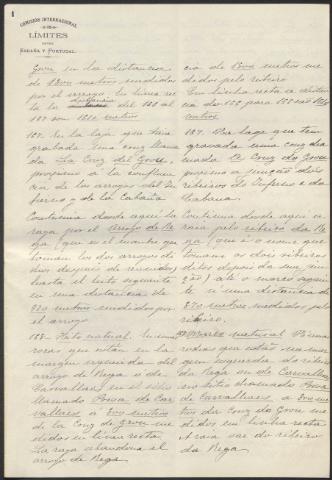 1
COMISIÓN INTERNACIONAL
DE
LÍMITES
ENTRE
ESPAÑA Y PORTUGAL.
Grou en la distancia
de metros, medidos
por el arroyo. En línea rec-
ta la distancia del 186 al
187 son metros
187. En la laja que tiene
grabada una cruz llama-
da La Cruz del Grou,
próximo a la confluen-
cia de los arroyos del In-
fierno y de la Cabaña
Continúa desde aquí la
raya por el arroyo de Be-
ga (que es el nombre que
toman los dos arroyos di-
chos después de reunidos)
hasta el hito siguiente
en una distancia de
870 metros medidos por
el arroyo.
188. Hito natural. Unas
rocas que están en la
margen izquierda del
arroyo de Bega ó de
Carvallas, en el sitio
llamado Poua de Car-
vallaes á metros
de la Cruz de Grou me-
didos en línea recta.
La raya abandona el
arroyo de Bega
cia de metros me-
didos pelo ribeiro.
Em linha recta a distan-
cia do 186 para 187 são
metros
187. Na lage que tem
gravada uma cruz cha-
mada A Cruz do Grou
proximo a junção dos
ribeiros do Inferno e da
Cabana.
Continua desde aqui a
raia pelo ribeiro da Be-
ga (que é o nome que
tomam os dois ribeiros
ditos depois da sua jun-
ção) até o marco seguin-
te n'uma distancia de
870 metros, medidos pelo
ribeiro.
188. Marco natural. Umas
rochas que estão na mar-
gem esquerda do ribeiro
da Bega ou de Carvallas
no sitio chamado Poua
de Carvalhaes, a me-
tros da Cruz do Grou me-
didos em linha recta
A raia sae do ribeiro
da Bega